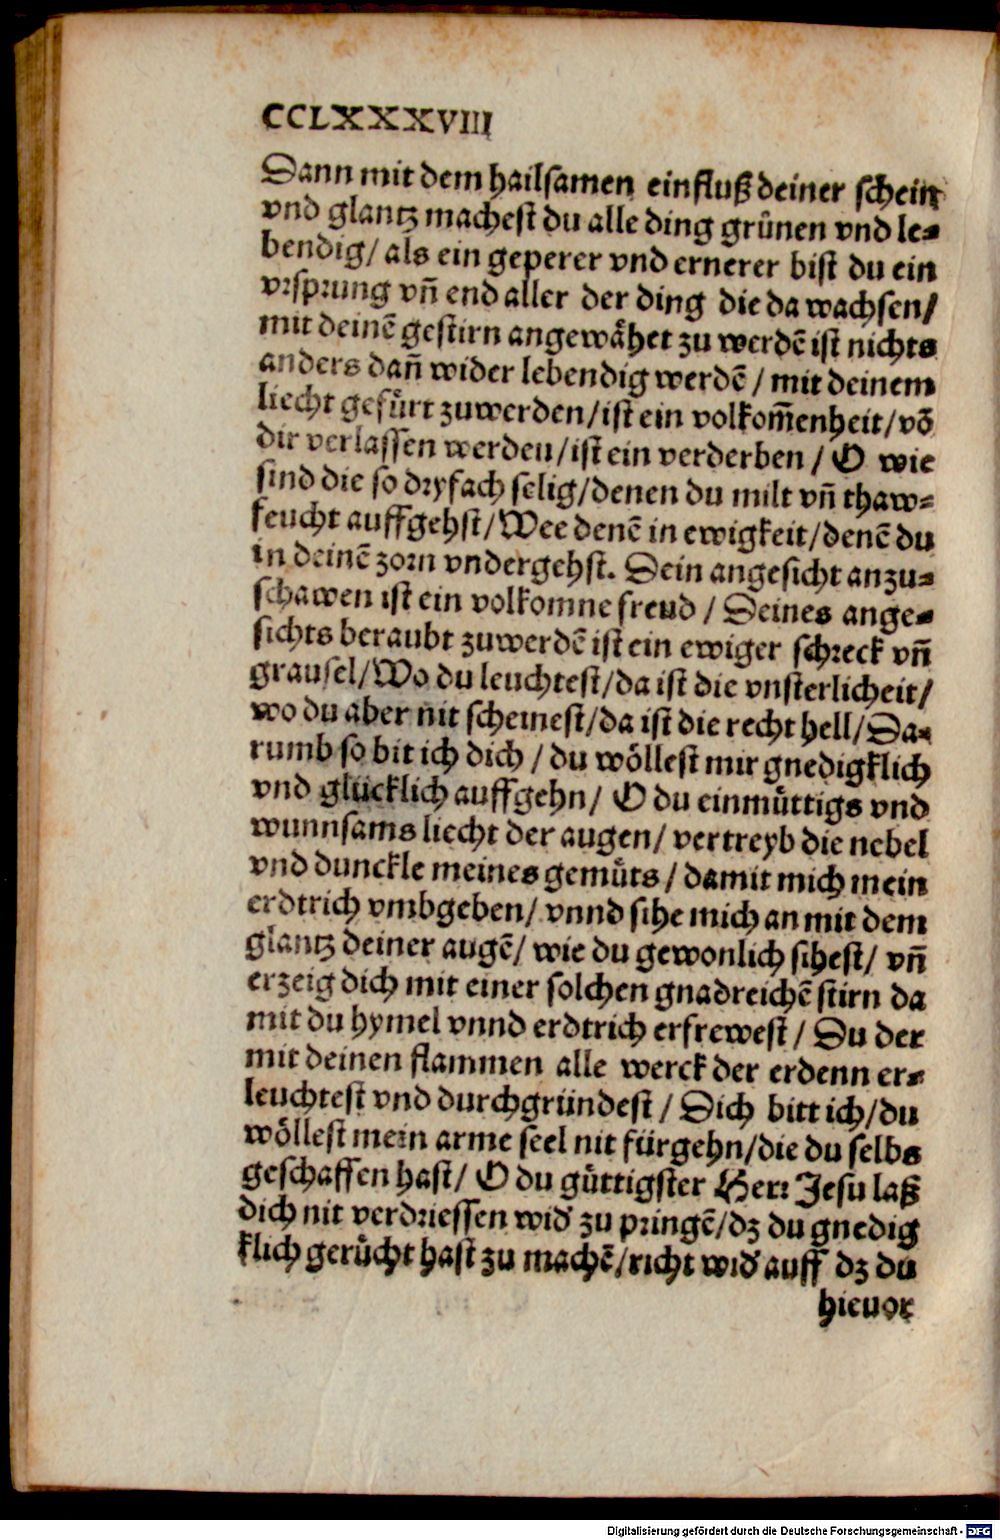 CCLXXXVIII
Dann mit dem hailsamen einfluß deiner schein
vnd glantz machest du alle ding gruͤnen vnd le⸗
bendig/ als ein geperer vnd ernerer bist du ein
vrsprung vn̄ end aller der ding die da wachsen/
mit deinē gestirn angewaͤhet zu werdē ist nichts
anders dan̄ wider lebendig werdē / mit deinem
liecht gefuͤrt zuwerden/ist ein volkom̄enheit/vō
dir verlassen werden/ist ein verderben / O wie
sind die so dryfach selig/denen du milt vn̄ thaw⸗
feucht auffgehst/Wee denē in ewigkeit/denē du
in deinē zorn vndergehst. Dein angesicht anzu⸗
schawen ist ein volkomne freud / Deines ange⸗
sichts beraubt zuwerdē ist ein ewiger schreck vn̄
grausel/Wo du leuchtest/da ist die vnsterlicheit/
wo du aber nit scheinest/da ist die recht hell/Da⸗
rumb so bit ich dich / du woͤllest mir gnedigklich
vnd glücklich auffgehn/ O du einmuͤttigs vnd
wunnsams liecht der augen/ vertreyb die nebel
vnd dunckle meines gemuͤts / damit mich mein
erdtrich vmbgeben/ vnnd sihe mich an mit dem
glantz deiner augē/ wie du gewonlich sihest/ vn̄
erzeig dich mit einer solchen gnadreichē stirn da
mit du hymel vnnd erdtrich erfrewest / Du der
mit deinen flammen alle werck der erdenn er⸗
leuchtest vnd durchgründest / Dich bitt ich/du
woͤllest mein arme seel nit fürgehn/die du selbs
geschaffen hast/ O du guͤttigster Herr Jesu laß
dich nit verdriessen wid' zu pringē/dz du gnedig
klich geruͤcht hast zu machē/richt wid' auff dz du
hieuor
Digitalisierung gefördert durch die Deutsche Forschungsgemeinschaft - DFG